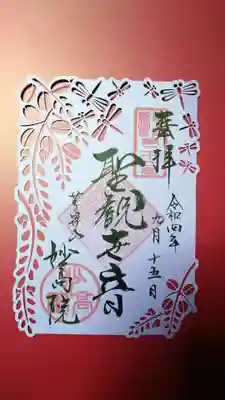 奉拝
令和四年
九月十五日
聖観世音
妙高院